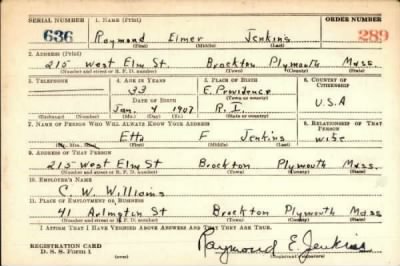 SERIAL NUMBER 1. NAME (Print) ORDER NUMBER
636 Raymond Elmer Jenkins 289
(First) (Middle) (Last)
2. ADDRESS (Print)
215 West Elm St. Brockton Plymouth Mass.
(Number and street or R. F. D. number) (Town) (County) (State)
3. TELEPHONE 4. AGE IN YEARS 5. PLACE OF BIRTH 6. COUNTRY OF CITIZENSHIP
33 E. Providence
DATE OF BIRTH (Town or county) U.S.A
Jan. 4 1907 R. I.
(Exchange) (Number) (Mo.) (Day) (Yr.) (State or country)
7. NAME OF PERSON WHO WILL ALWAYS KNOW YOUR ADDRESS 8. RELATIONSHIP OF THAT PERSON
Etta F Jenkins wife
(Mr., Mrs., Miss) (First) (Middle) (Last)
9. ADDRESS OF THAT PERSON
215 West Elm St Brockton Plymouth Mass.
(Number and street or R. F. D. number) (Town) (County) (State)
10. EMPLOYER'S NAME
C. W. Williams
11. PLACE OF EMPLOYMENT OR BUSINESS
41 Arlington St Brockton Plymouth Mass
(Number and street or R. F. D. number) (Town) (County) (State)
I AFFIRM THAT I HAVE VERIFIED ABOVE ANSWERS AND THAT THEY ARE TRUE.
REGISTRATION CARD
D. S. S. Form 1 Raymond E. Jenkins
(Registrant's signature)